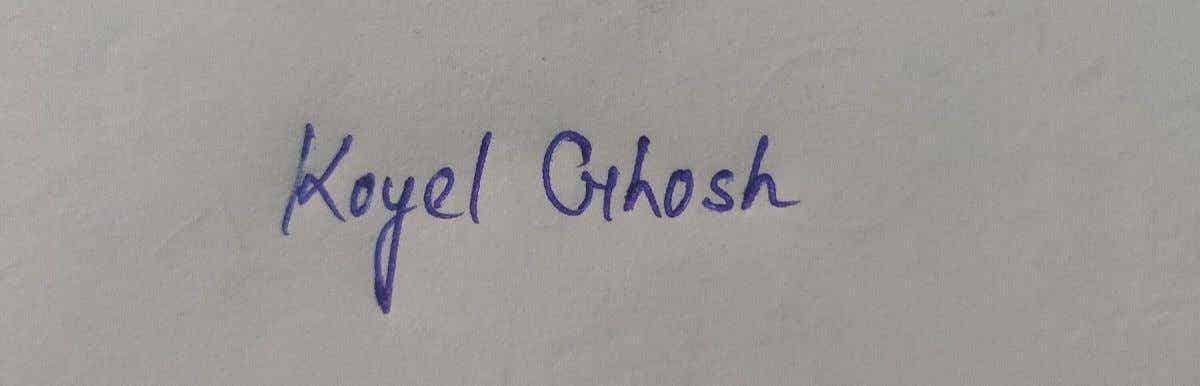 Koyel Ghosh